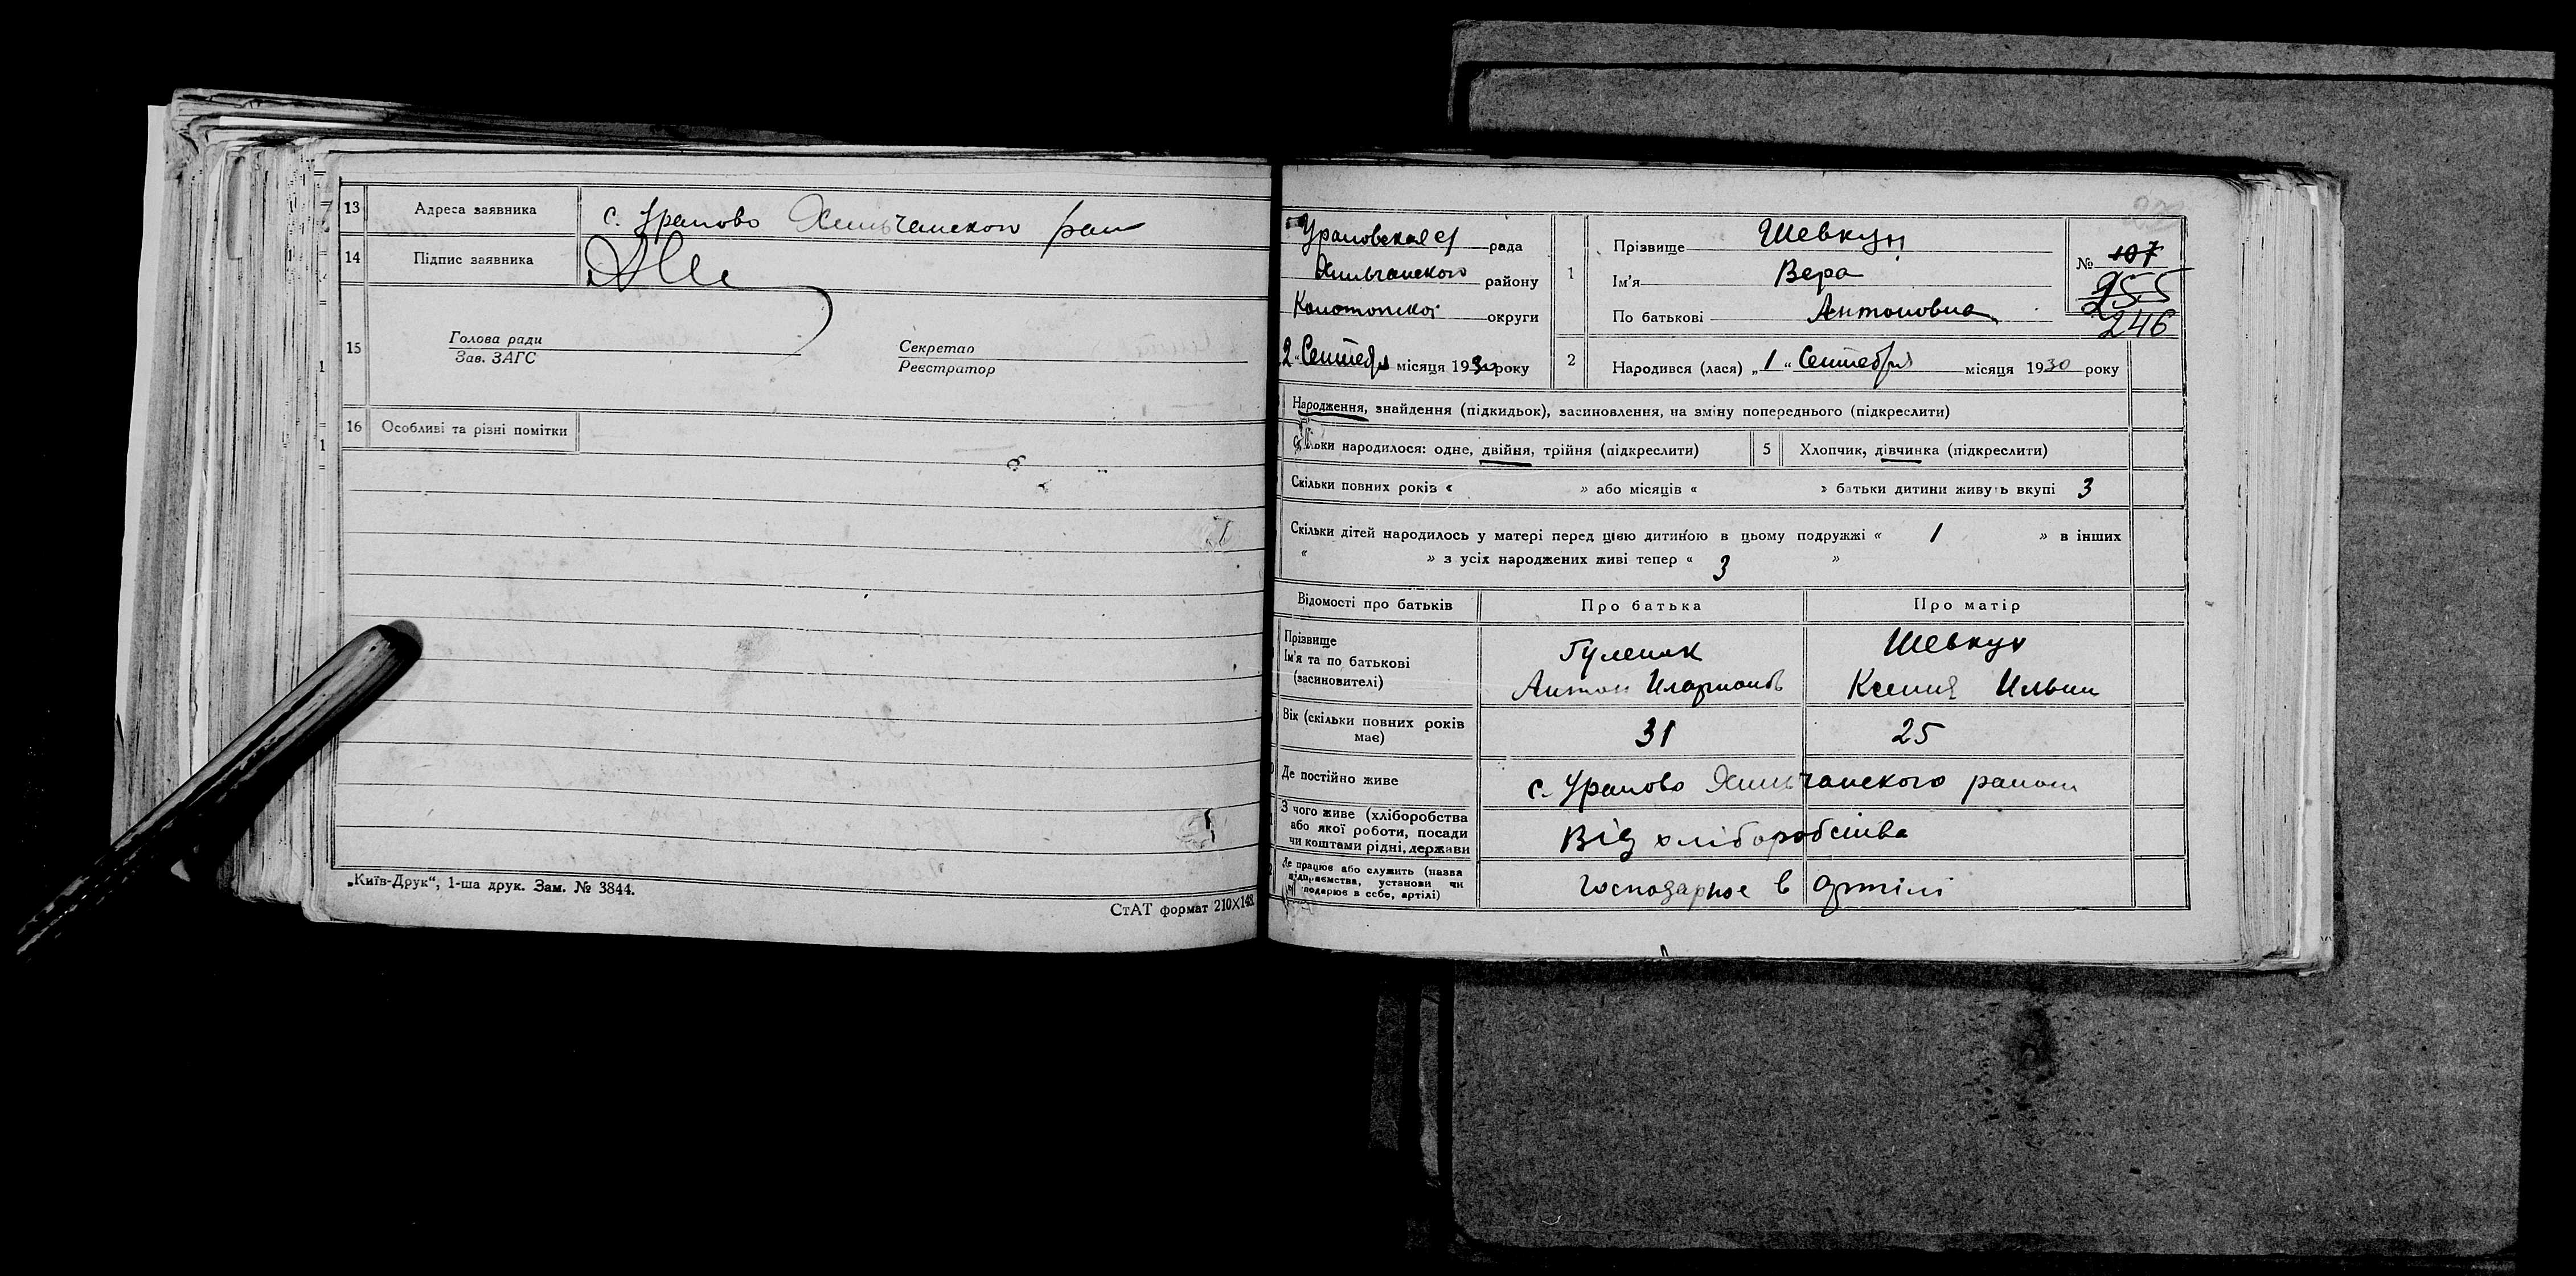 13 Адреса заявника с. Урапово Хильчанского раи
14 Підпис заявника
15 Голова ради
Зав. ЗАГС
Секретар
Реєстратор
16 Особливі та різні помітки
„Київ-Друк“, 1-ша друк. Зам. № 3844.
СтАТ формат 210×148.
Ураповская с/ рада
Хильчанского району
Конотопской округи
2 „ Сентебря місяця 1930 року
1 Прізвище Шевкун
Ім'я Вера
По батькові Антоновна
№ 107
255
246
2 Народився (лася) „ 1 “ Сентебря місяця 1930 року
Народження, знайдення (підкидьок), засиновлення, на зміну попереднього (підкреслити)
Скільки народилося: одне, двійня, трійня (підкреслити) 5 Хлопчик, дівчинка (підкреслити)
Скільки повних років « » або місяців « » батьки дитини живуть вкупі 3
Скільки дітей народилось у матері перед цією дитиною в цьому подружжі « 1 » в інших
« » з усіх народжених живі тепер « 3 »
Відомості про батьків Про батька Про матір
Прізвище Гуленик Шевкун
Ім'я та по батькові
(засиновителі) Антон Иларионов Ксения Ильин
Вік (скільки повних років має) 31 25
Де постійно живе с. Урапово Хильчанского раиони
З чого живе (хліборобства
або якої роботи, посади
чи коштами рідні, держави Від хліборобства
Де працює або служить (назва
підприємства, установи чи
господарює в себе, артілі) Господарює в артілі